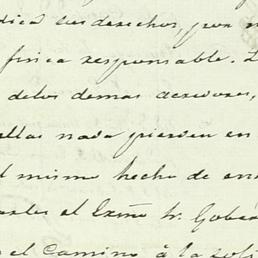 dica sus derechos, por n
finca responsable. L
delos demas acreedores,
ellas nada pierden en
l mismo hecho de en
el Exmo Sr. Gober
el Camino á la soli